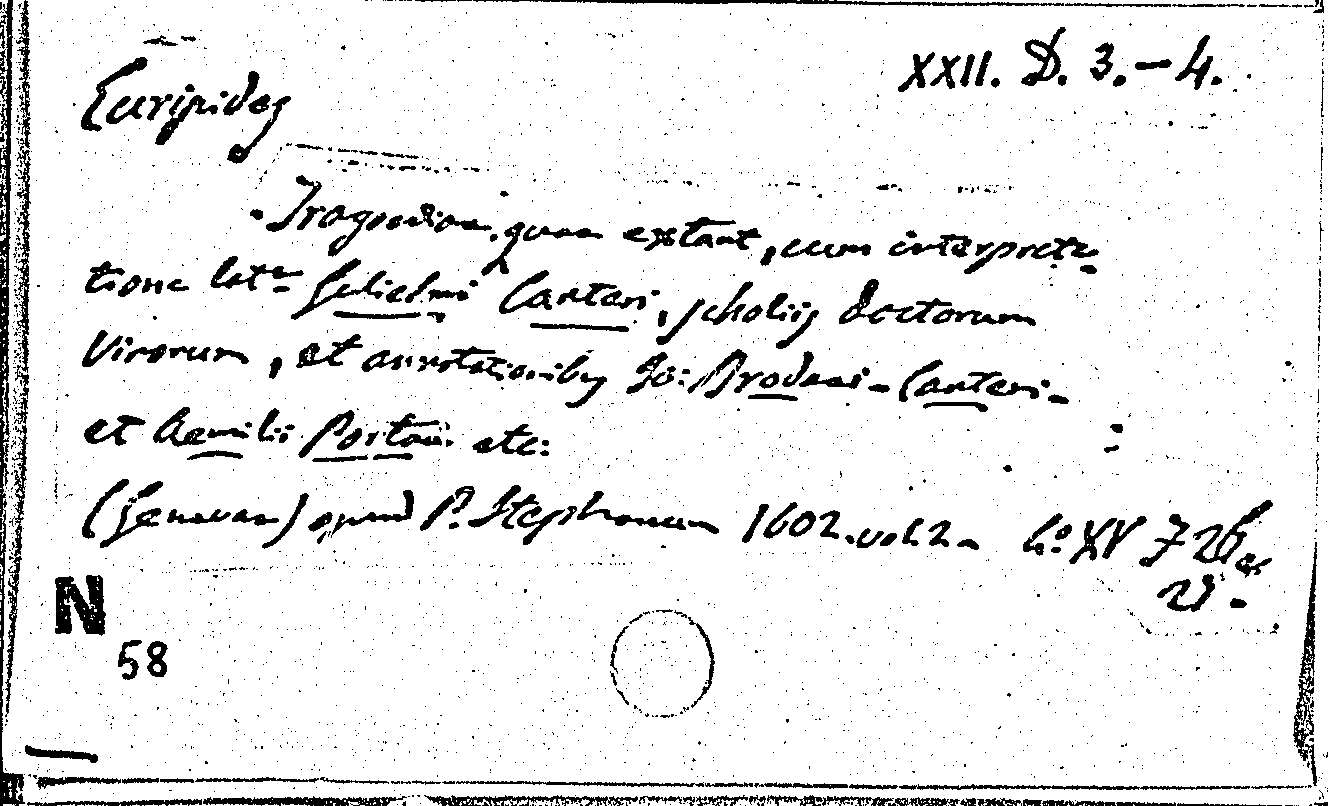 XXII. D. 3.-4.
Euripides
Tragoediae quae extant, cum interpreta-
tione lat. Gulielmi Canteri, scholiis doctorum
Virorum, et annotationibus Jo: Brodaei - Canteri -
et Aemilii Portae etc:
(Genevae) apud P. Stephanum 1602. vol. 2. 4.º XV
N
58